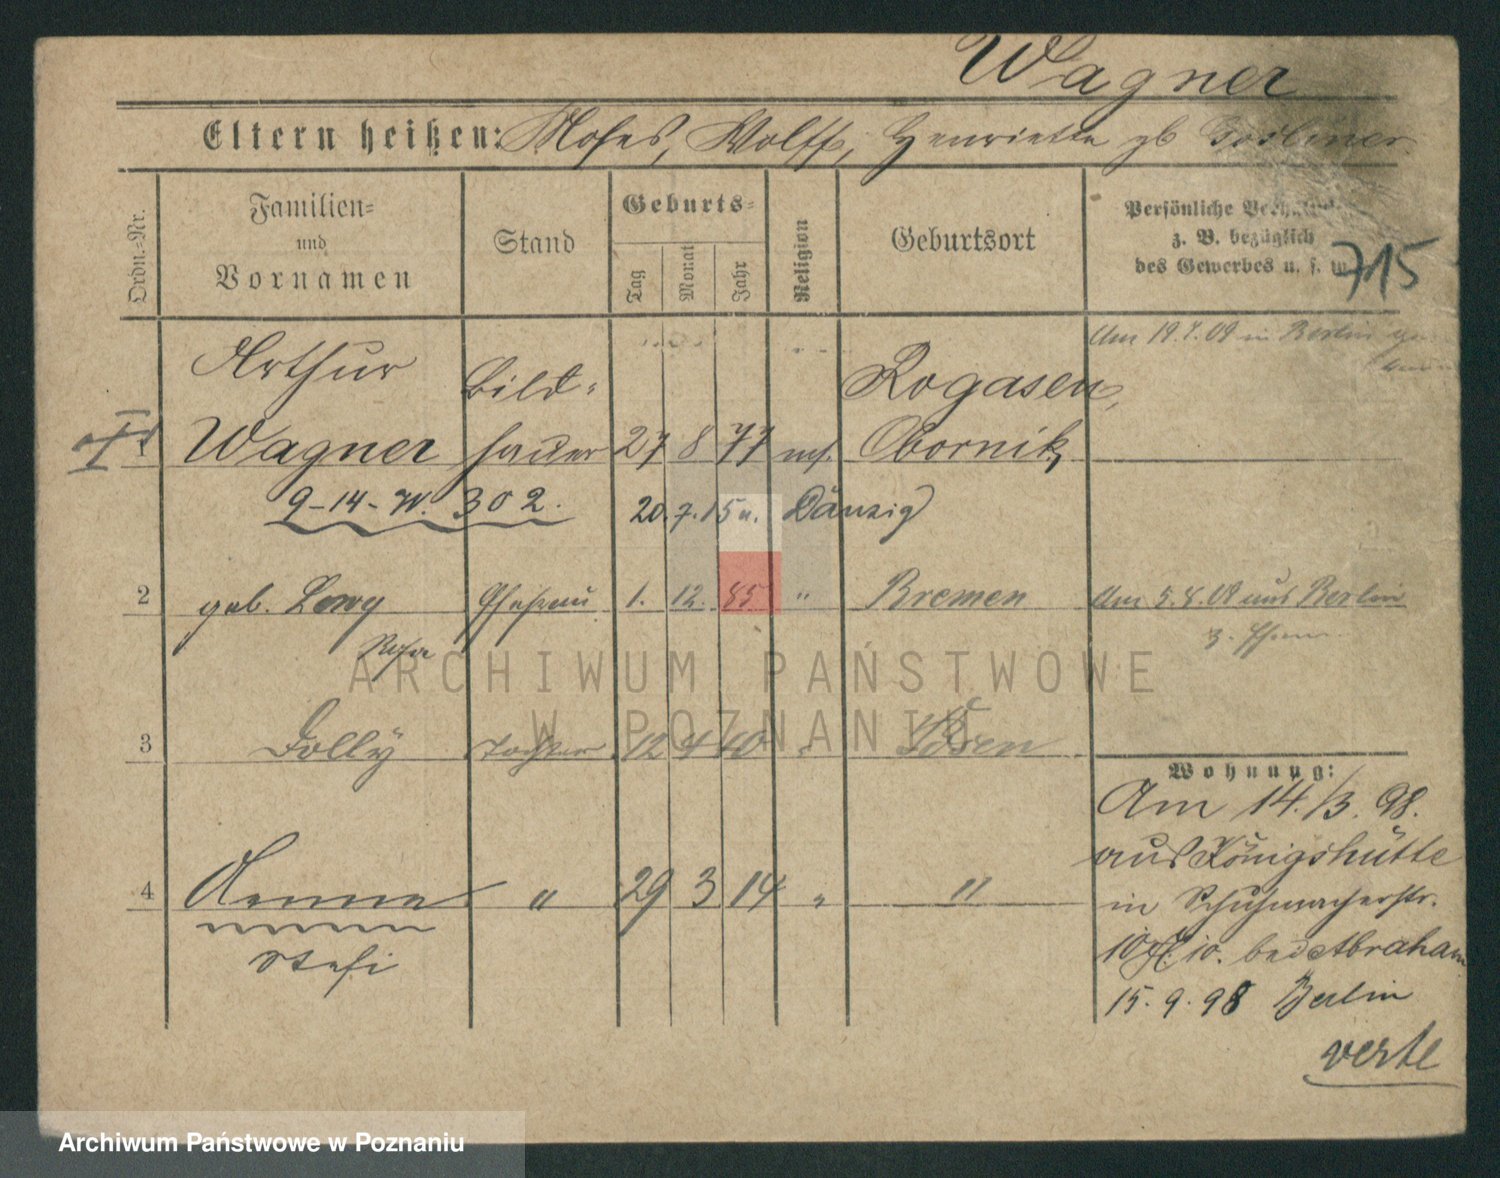 Wagner
Eltern heißen: Moses, Wolff, Henriette gb
Ordn.=Nr.
Familien=
und
Vornamen
Stand
Geburts=
Tag
Monat
Jahr
Religion
Geburtsort
Persönliche
z. B. bezüglich
des Gewerbes u. s. w.
715
Am 19.7.09 in Berlin
Arthur
Bild-
Rogasen,
1 Wagner hauer 27 8 77 mos. Obornik
9-14-W. 302. 20.7.15 n. Danzig
2 geb. Lowy Ehefrau 1. 12. 85 " Bremen Am 5.8.09 aus Berlin
3 Dolly Tochter 12 4 10 " Posen
Wohnung:
Am 14./3. 98.
aus Königshütte
4 Aenne " 29 3 14 " "
in Schuhmacherstr.
Stefi
10 bei Abraham
15.9.98 Berlin
verte
ARCHIWUM PAŃSTWOWE
W POZNANIU
Archiwum Państwowe w Poznaniu